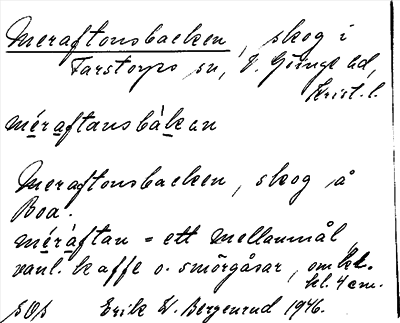 Meraftonsbacken, skog i
Farstorps sn, V. Göinge hd,
Krist. l.
méraftansbàkan
Meraftonsbacken, skog å
Boa.
méràftan = ett mellanmål,
vanl. kaffe o. smörgåsar, omkr.
kl. 4 em.
Erik W. Bergenrud 1946.